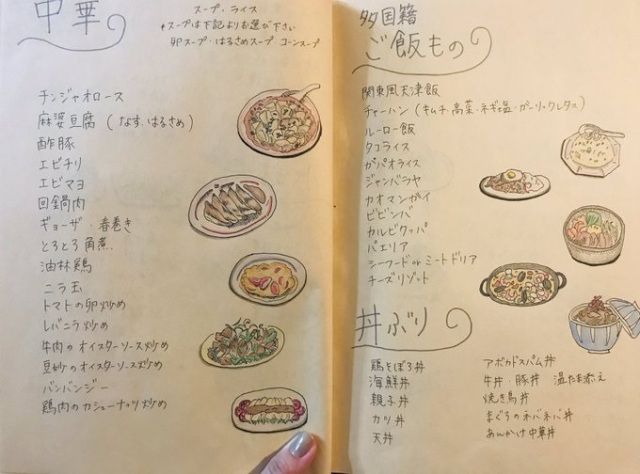 中華
スープ・ライス
*スープは下記よりお選び下さい
卵スープ・はるさめスープ・コーンスープ
チンジャオロース
麻婆豆腐 (なす・はるさめ)
酢豚
エビチリ
エビマヨ
回鍋肉
ギョーザ・春巻き
とろとろ角煮
油林鶏
ニラ玉
トマトの卵炒め
レバニラ炒め
牛肉のオイスターソース炒め
豆妙のオイスターソース炒め
バンバンジー
鶏肉のカシューナッツ炒め
多国籍
ご飯もの
関東風天津飯
チャーハン (キムチ・高菜・ネギ塩・ガーリック・レタス)
ルーロー飯
タコライス
ガパオライス
ジャンバラヤ
カオマンガイ
ビビンバ
カルビクッパ
パエリア
シーフード or ミートドリア
チーズリゾット
丼ぶり
鶏そぼろ丼
海鮮丼
親子丼
カツ丼
天丼
アボカドスパム丼
牛丼・豚丼 温たま添え
焼き鳥丼
まぐろのネバネバ丼
あんかけ中華丼